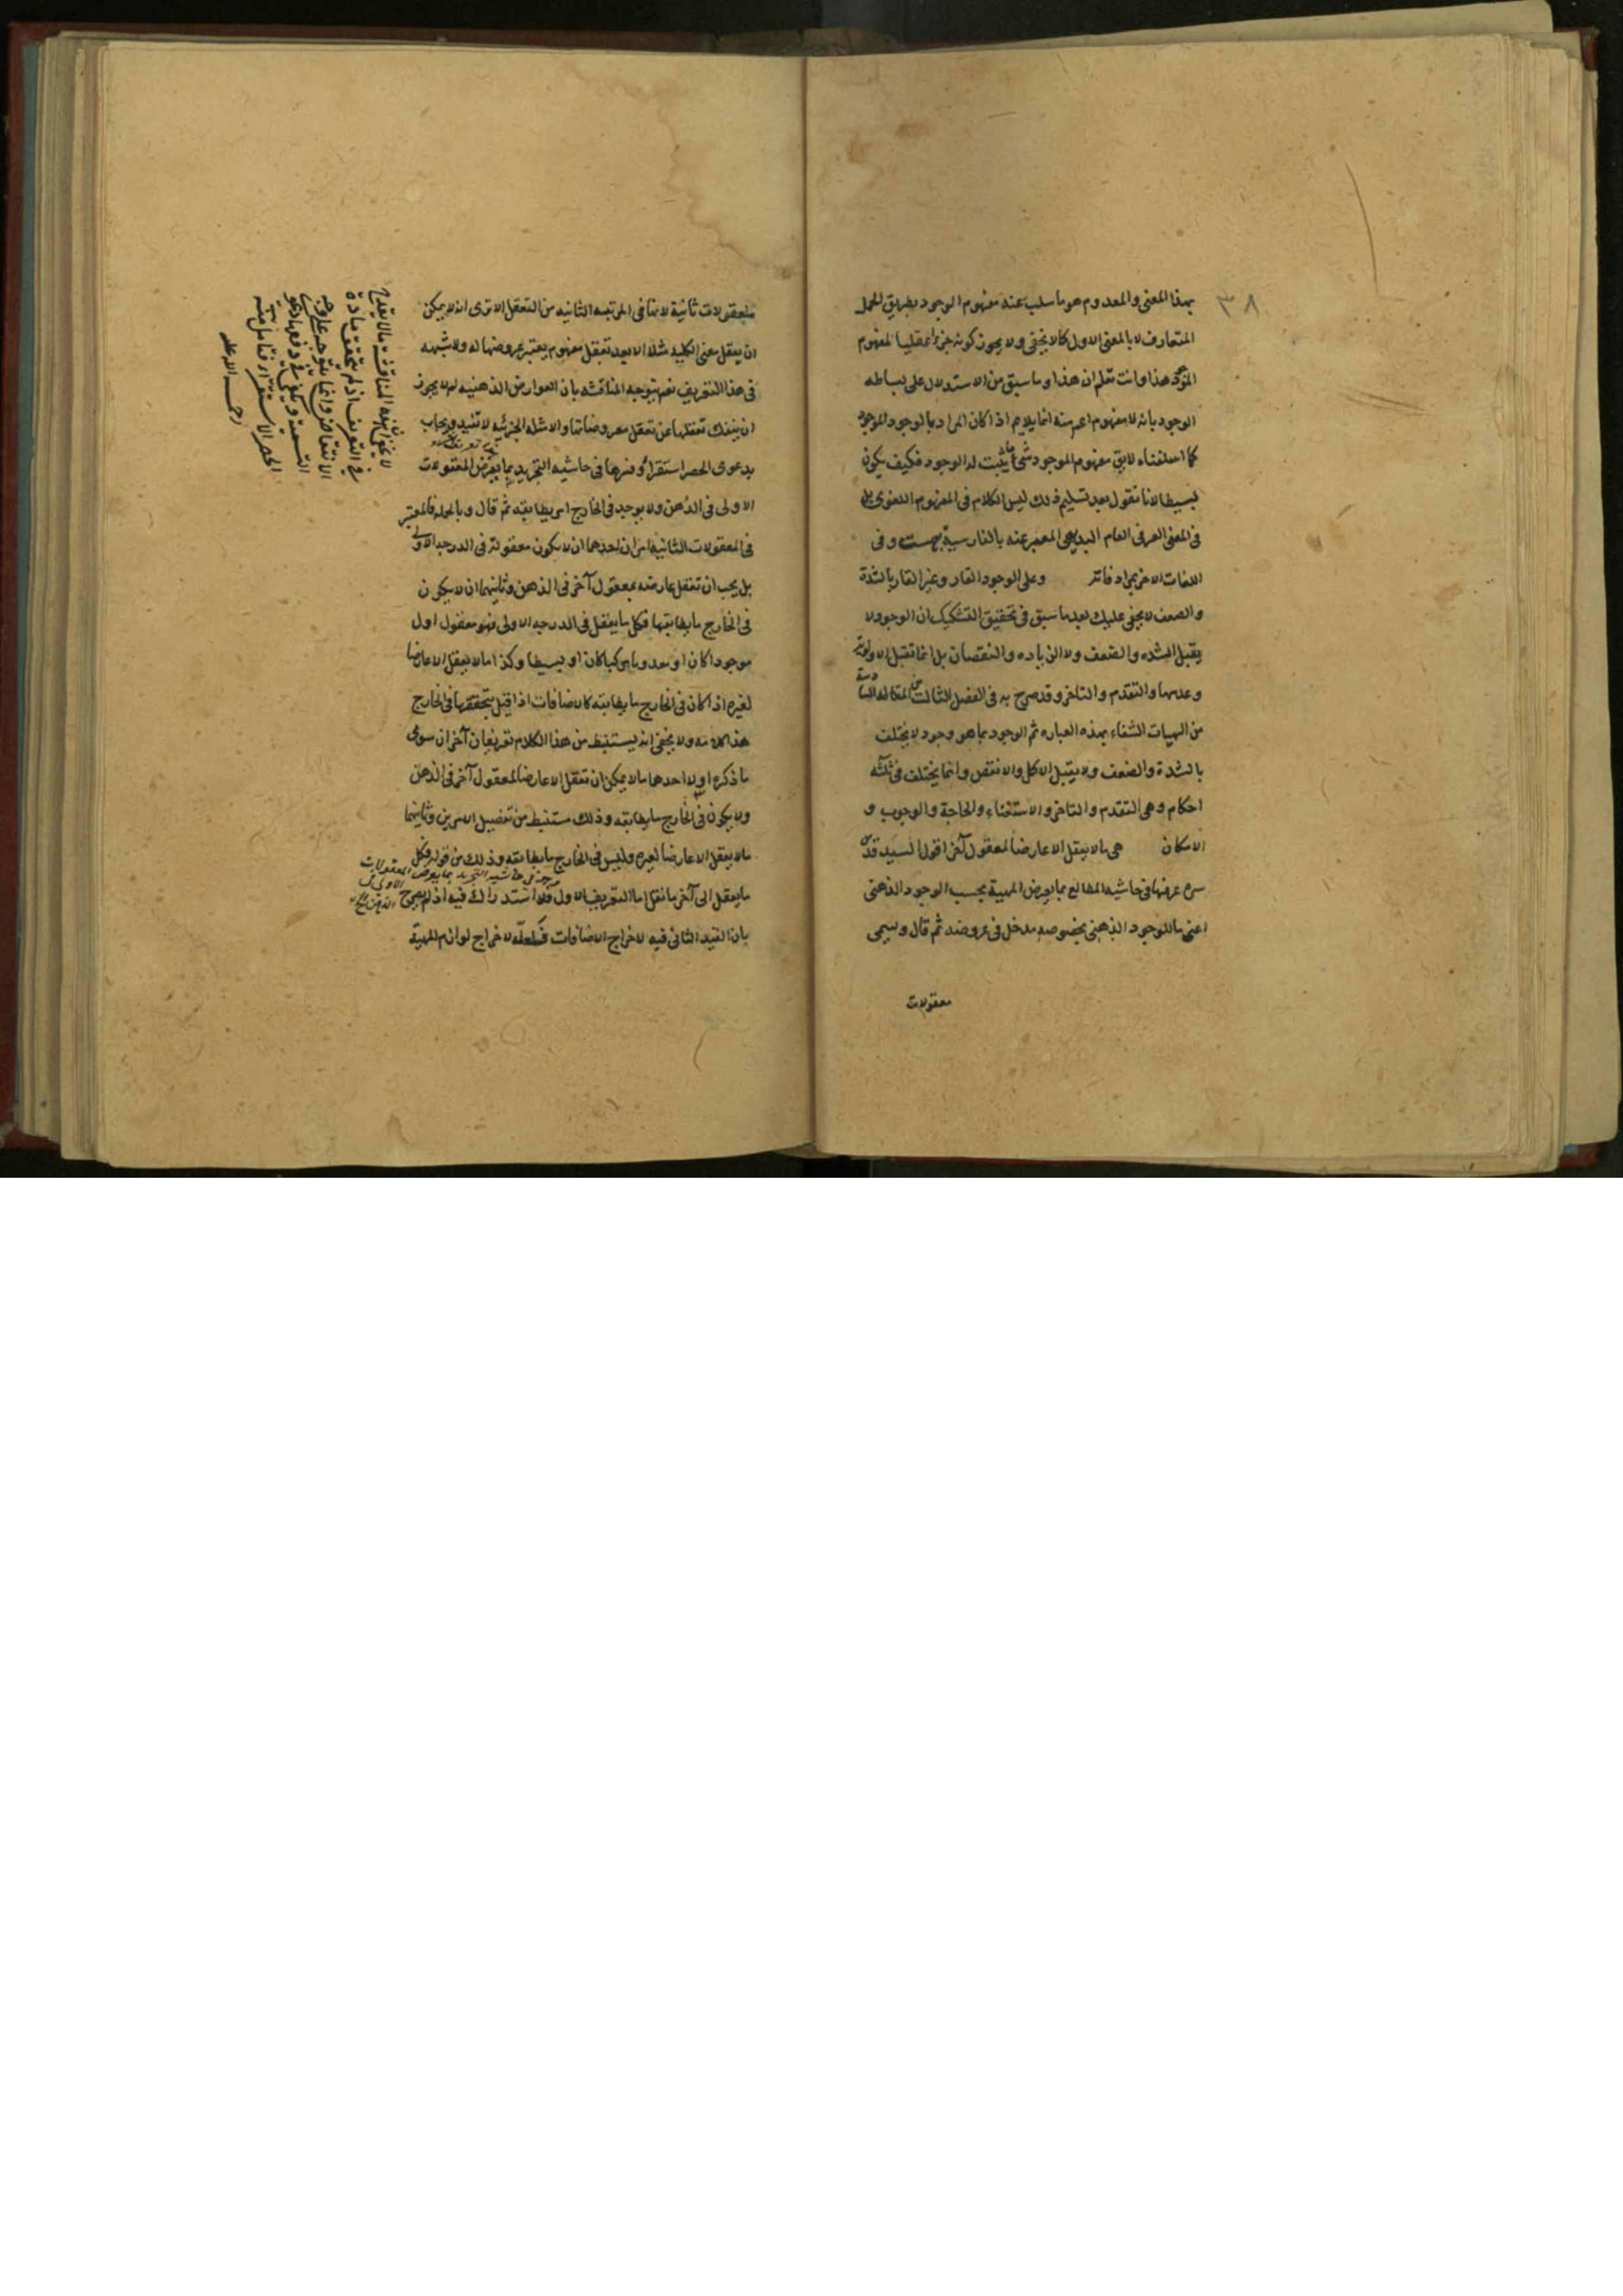 ٣٨
بهذا المعنى والمعدوم هو ما سلب عنه مفهوم الوجود بطريق الحمل
المتعارف لا بالمعنى الاول كما لا يخفى ولا يجوز كونه جزءا عقليا لمفهوم
هذا وانت تعلم ان هذا وما سبق من الاستدلال على بساطه
الوجود بانه لا مفهوم اعم منه انما يلايم اذا كان المراد بالوجود الموجود
كما اسلفناه لا يق مفهوم الموجود شئ ما يثبت له الوجود فكيف يكون
بسيطا لانا نقول بعد تسليم ذلك ليس الكلام فى المفهوم اللغوى بل
فى المعنى العرفى العام البديهى المعبر عنه بالفارسية بهست وفى
اللغات الاخر بمرادفاته وعلى الوجود القار وغير القار بالشدة
والضعف لا يخفى عليك بعد ما سبق فى تحقيق التشكيك ان الوجود لا
يقبل الشده والضعف ولا الزياده والنقصان بل انما تقبل الاولوية
وعدمها والتقدم والتاخر وقد صرح به فى الفصل الثالث من المقاله السادسة
من الهيات الشفاء بهذه العباره ثم الوجود بما هو وجود لا يختلف
بالشدة والضعف ولا يقبل الاكمل والانقص وانما يختلف فى ثلثه
احكام وهى التقدم والتاخر والاستغناء والحاجة والوجوب و
الامكان هى ما لا يعقل الا عارضا لمعقول آخر اقول السيد قدس
سره عرفها فى حاشيه المطالع بما يعرض المهية بحسب الوجود الذهنى
اعنى ما للوجود الذهنى بخصوصه مدخل فى عروضه ثم قال ويسمى
معقولات
معقولات ثانية لانها فى المرتبه الثانيه من التعقل الا ترى انه لا يمكن
ان يعقل معنى الكليه مثلا الا بعد تعقل مفهوم يعتبر عروضها له ولا شبهه
فى هذا التعريف نعم يتوجه المناقشه بان العوارض الذهنيه لم لا يجوز
ان ينفك تعقلها عن تعقل معروضاتها والامثله الجزئيه لا تفيد ويجاب
بدعوى الحصر استقراء وفسرها فى حاشيه التجريد بما يعرض المعقولات
الاولى فى الذهن ولا يوجد فى الخارج امر يطابقه ثم قال وبالجمله فالمعتبر
فى المعقولات الثانيه امران احدهما ان لا يكون معقوله فى الدرجه الاولى
بل يجب ان تعقل عارضه لمعقول آخر فى الذهن وثانيهما ان لا يكون
فى الخارج ما يطابقها فكل ما يعقل فى الدرجه الاولى فهو معقول اول
موجودا كان او معدوما مركبا كان او بسيطا وكذا ما لا يعقل الا عارضا
لغيره اذا كان فى الخارج ما يطابقه كالاضافات اذا قيل بتحققها فى الخارج
هذا كلامه ولا يخفى انه يستنبط من هذا الكلام تعريفان آخران سوى
ما ذكره اولا احدهما ما لا يمكن ان تعقل الا عارضا لمعقول آخر فى الذهن
ولا يكون فى الخارج ما يطابقه وذلك مستنبط من تفصيل الامرين وثانيهما
ما لا يعقل الا عارضا لغيره وليس فى الخارج ما يطابقه وذلك من قوله فكل
ما يعقل الى آخر ما نقل اما التعريف الاول فلا استدراك فيه اذ لم يصرح
بان القيد الثانى فيه لاخراج الاضافات فلعله لاخراج لوازم المهية
فى حاشيه التجريد بما يعرض المعقولات
الاولى
لا يخفى ان هذه المناقشة مما لا يقدح
فى التعريف اذ لم يتحقق مادة
الانتقاض وانما يتوجه على وجه
التسمية ويكفى فى دفعها دعوى
الحصر الاستقرائى فتأمل منه
رحمه الله عليه